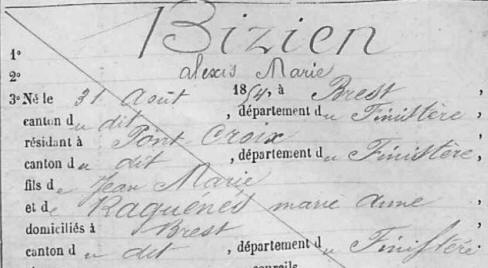 Bizien
1º
2º alexis Marie
3º Né le 31 Août 1864, à Brest,
canton du dit, département du Finistère,
résidant à Pont Croix
canton du dit, département du Finistère,
fils de Jean Marie
et de Raguénès marie anne,
domiciliés à Brest
canton du dit, département du Finistère.